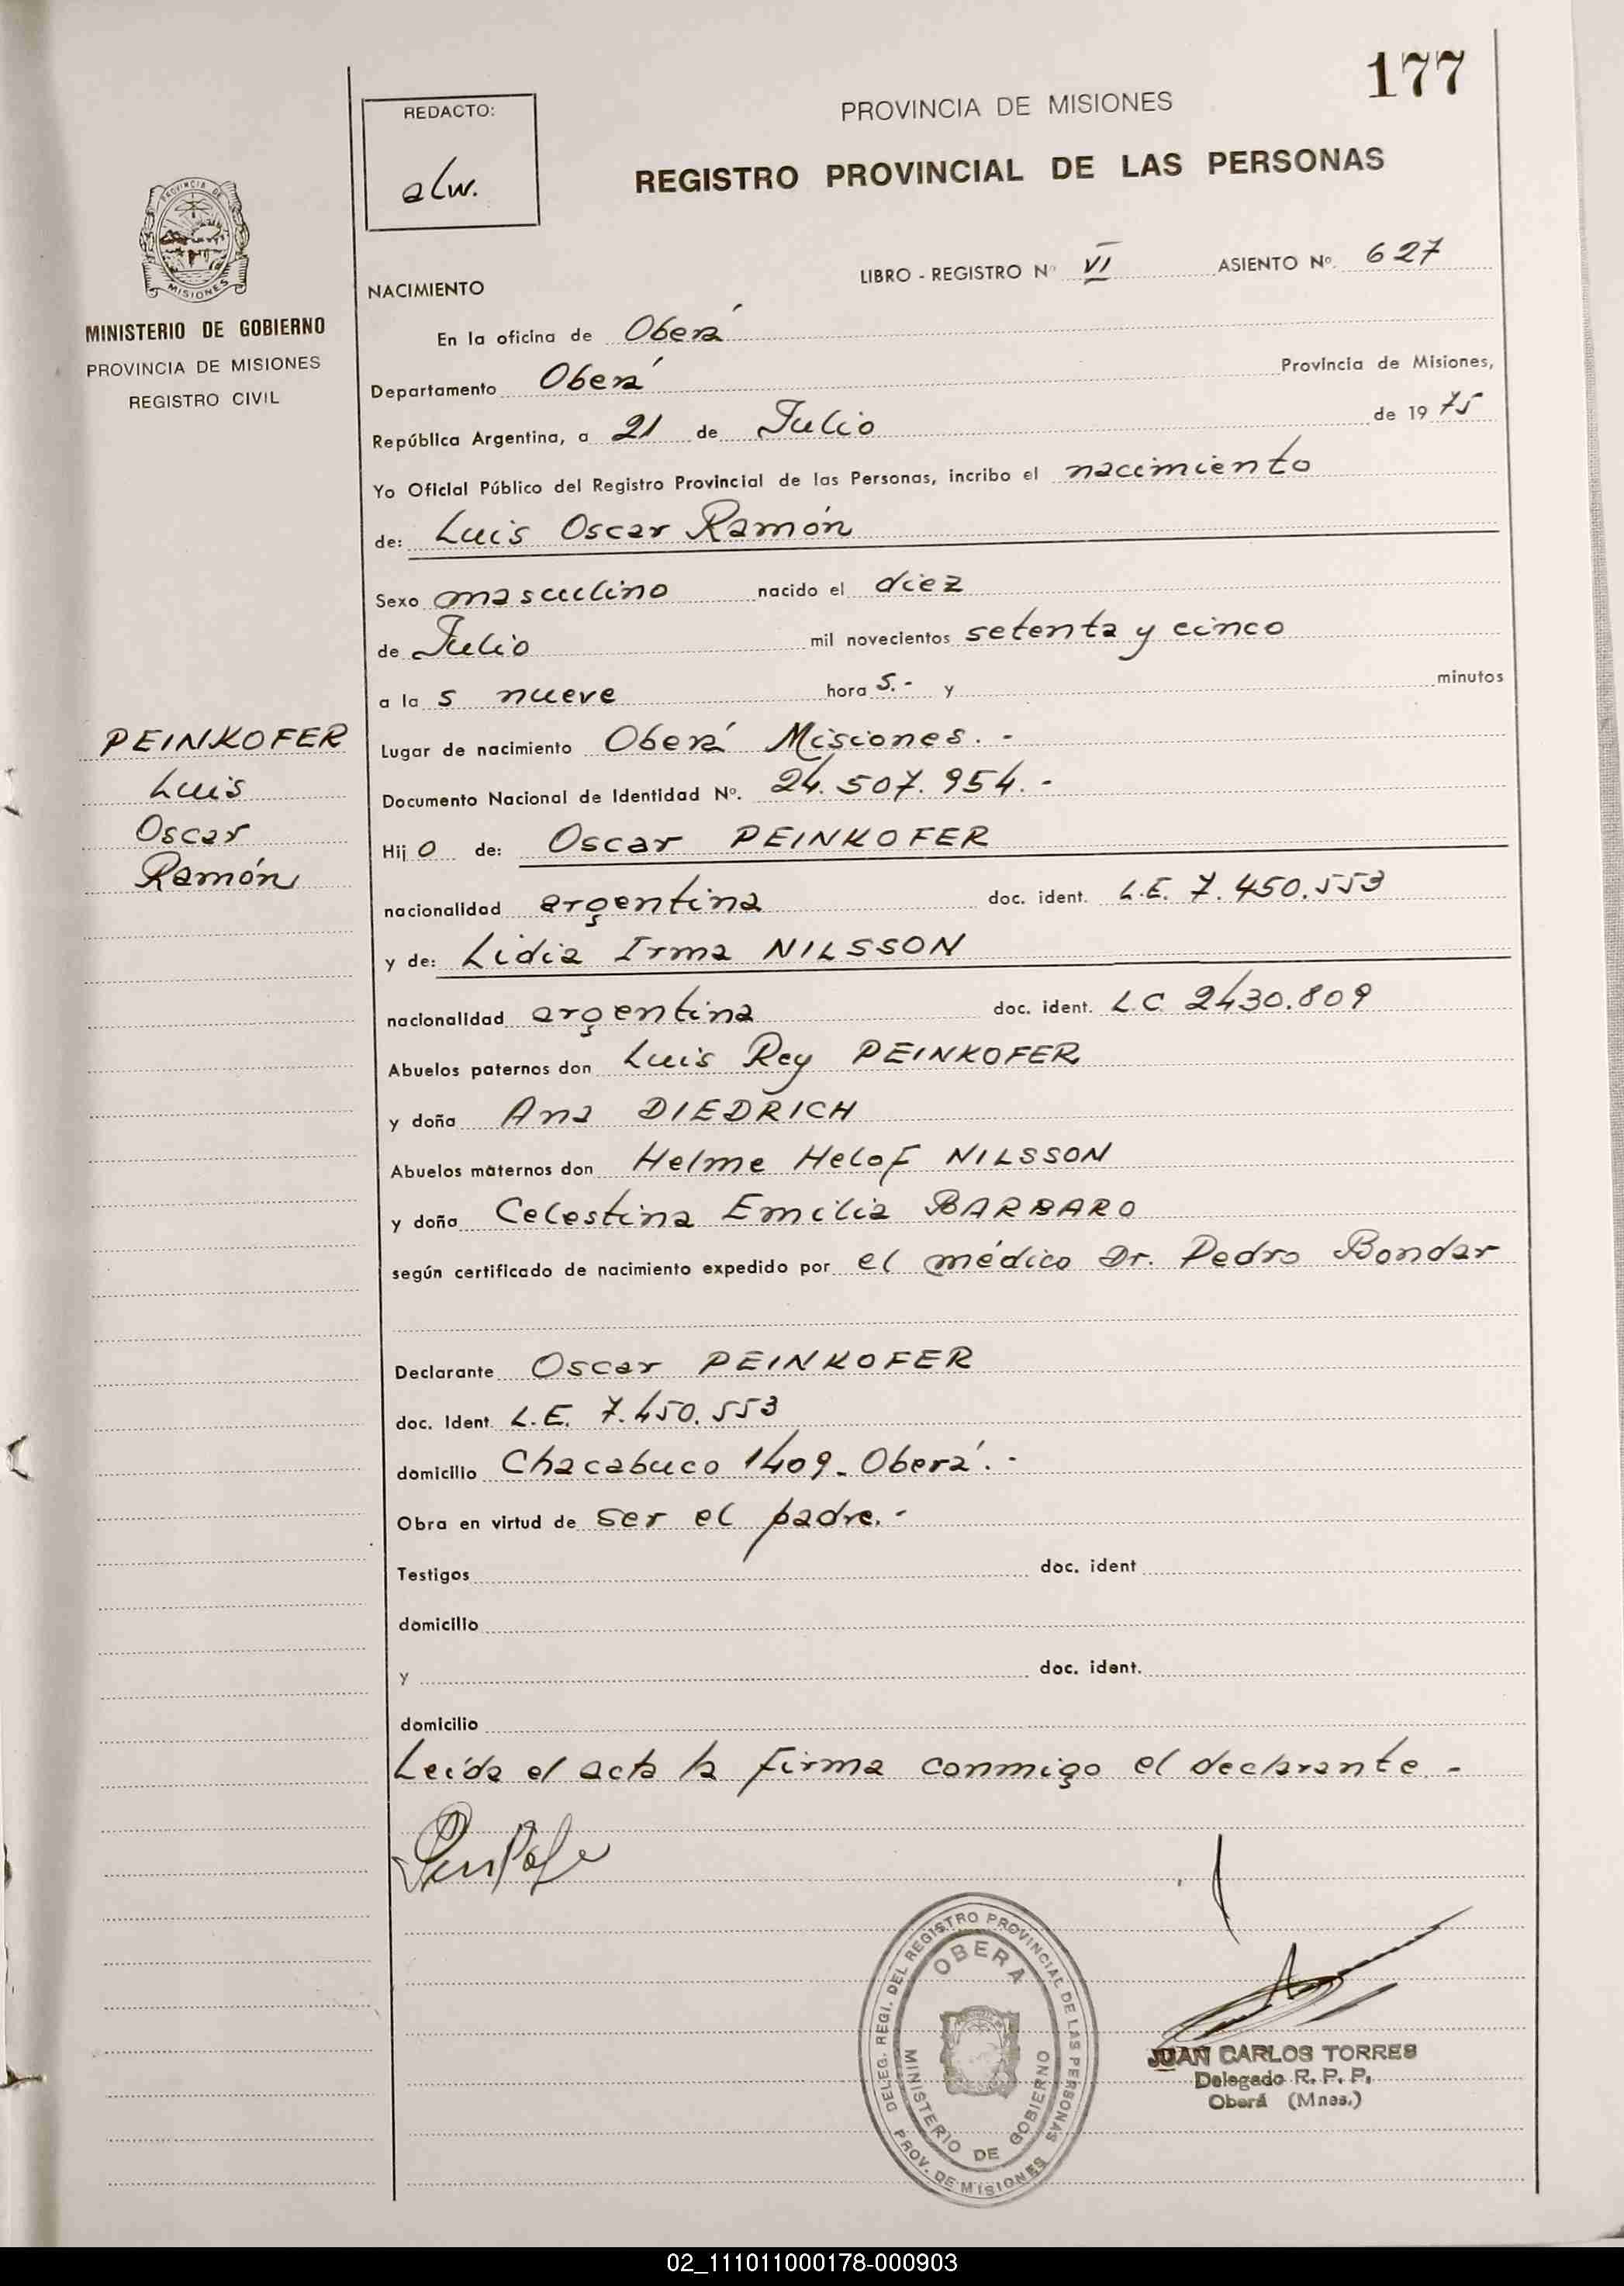 177
REDACTO:
alw.
PROVINCIA DE MISIONES
REGISTRO PROVINCIAL DE LAS PERSONAS
PROVINCIA DE
MISIONES
MINISTERIO DE GOBIERNO
PROVINCIA DE MISIONES
REGISTRO CIVIL
LIBRO - REGISTRO Nº VI ASIENTO Nº. 627
NACIMIENTO
En la oficina de Oberá
Departamento Oberá Provincia de Misiones,
República Argentina, a 21 de Julio de 1975
Yo Oficial Público del Registro Provincial de las Personas, incribo el nacimiento
de: Luis Oscar Ramón
Sexo masculino nacido el diez
de Julio mil novecientos setenta y cinco
a la s nueve hora s.- y minutos
Lugar de nacimiento Oberá Misiones. -
Documento Nacional de Identidad Nº. 24.507.954.-
Hijo de: Oscar PEINKOFER
nacionalidad argentina doc. ident. L.E. 7.450.553
y de: Lidia Irma NILSSON
nacionalidad argentina doc. ident. L.C. 2430.809
Abuelos paternos don Luis Rey PEINKOFER
y doña Ana DIEDRICH
Abuelos maternos don Helme Helof NILSSON
y doña Celestina Emilia BARBARO
según certificado de nacimiento expedido por el médico Dr. Pedro Bondar
Declarante Oscar PEINKOFER
doc. Ident. L.E. 7.450.553
domicilio Chacabuco 1409- Oberá. -
Obra en virtud de ser el padre. -
Testigos doc. ident
domicilio
y doc. ident.
domicilio
Leída el acta la firma conmigo el declarante. -
PEINKOFER
Luis
Oscar
Ramón
DELEG. REGI. DEL REGISTRO PROVINCIAL DE LAS PERSONAS
PROV. DE MISIONES
OBERA
MINISTERIO DE GOBIERNO
JUAN CARLOS TORRES
Delegado R. P. P.
Oberá (Mnes.)
02_111011000178-000903